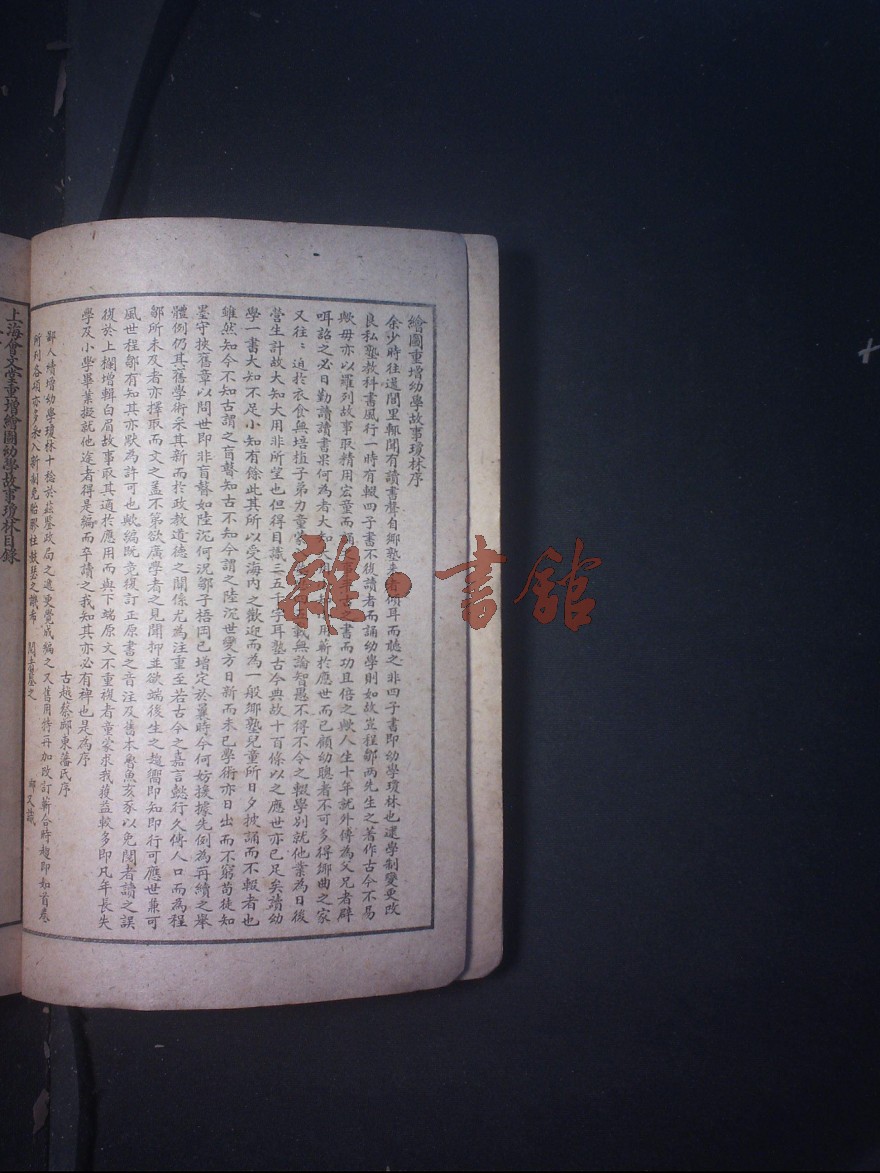 繪圖重增幼學故事瓊林序
余少時往還閭里輒聞有讀書聲自鄉塾來者傾耳而聽之非四子書即幼學瓊林也逮學制變更改
良私塾教科書風行一時有輟四子書不復讀者而誦幼學則如故豈程鄒兩先生之著作古今不易
歟毋亦以羅列故事取精用宏童而誦之書而功且倍之歟人生十年就外傅為父兄者辟
咡詔之必曰勤讀讀書果何為者大知大用薪於應世而已顧幼聰者不可多得鄉曲之家
又往〻迫於衣食無培植子弟力童載無論智愚不得不令之輟學別就他業為日後
營生計故大知大用非所望也但得目識三五千字耳塾古今典故十百條以之應世亦已足矣請幼
學一書大知不足小知有餘此其所以受海內之歡迎而為一般鄉塾兒童所日夕披誦而不輟者也
雖然知今不知古謂之盲瞽知古不知今謂之陸沉世變方日新而未已學術亦日出而不窮苟徒知
墨守挾舊章以問世即非盲瞽如陸沉何況鄒子梧岡已增定於曩時今何妨援據先例為再續之舉
體例仍其舊學術采其新而於政教道德之關係尤為注重至若古今之嘉言懿行久傳人口而為程
鄒所未及者亦擇取而文之蓋不第欲廣學者之見聞抑並欲端後生之趨嚮即知即行可應世兼可
風世程鄒有知其亦默為許可也歟編既竟復訂正原書之音注及舊本魯魚亥豕以免閱者讀之誤
復於上欄增輯白眉故事取其適於應用而與下端原文不重複者童蒙求我獲益較多即凡年長失
學及小學畢業擬就他途者得是編而卒讀之我知其亦必有裨也是為序
古越蔡郕東藩氏序
鄙人續增幼學瓊林十稔於茲鑒政局之遞更覺成編之又舊用特再加改訂薪合時趨即如首卷
所列各項亦多和入新制免貽膠柱鼓瑟之譏希閱者鑒之
郕又識
上海會文堂重增繪圖幼學故事瓊林目錄
雜·書館